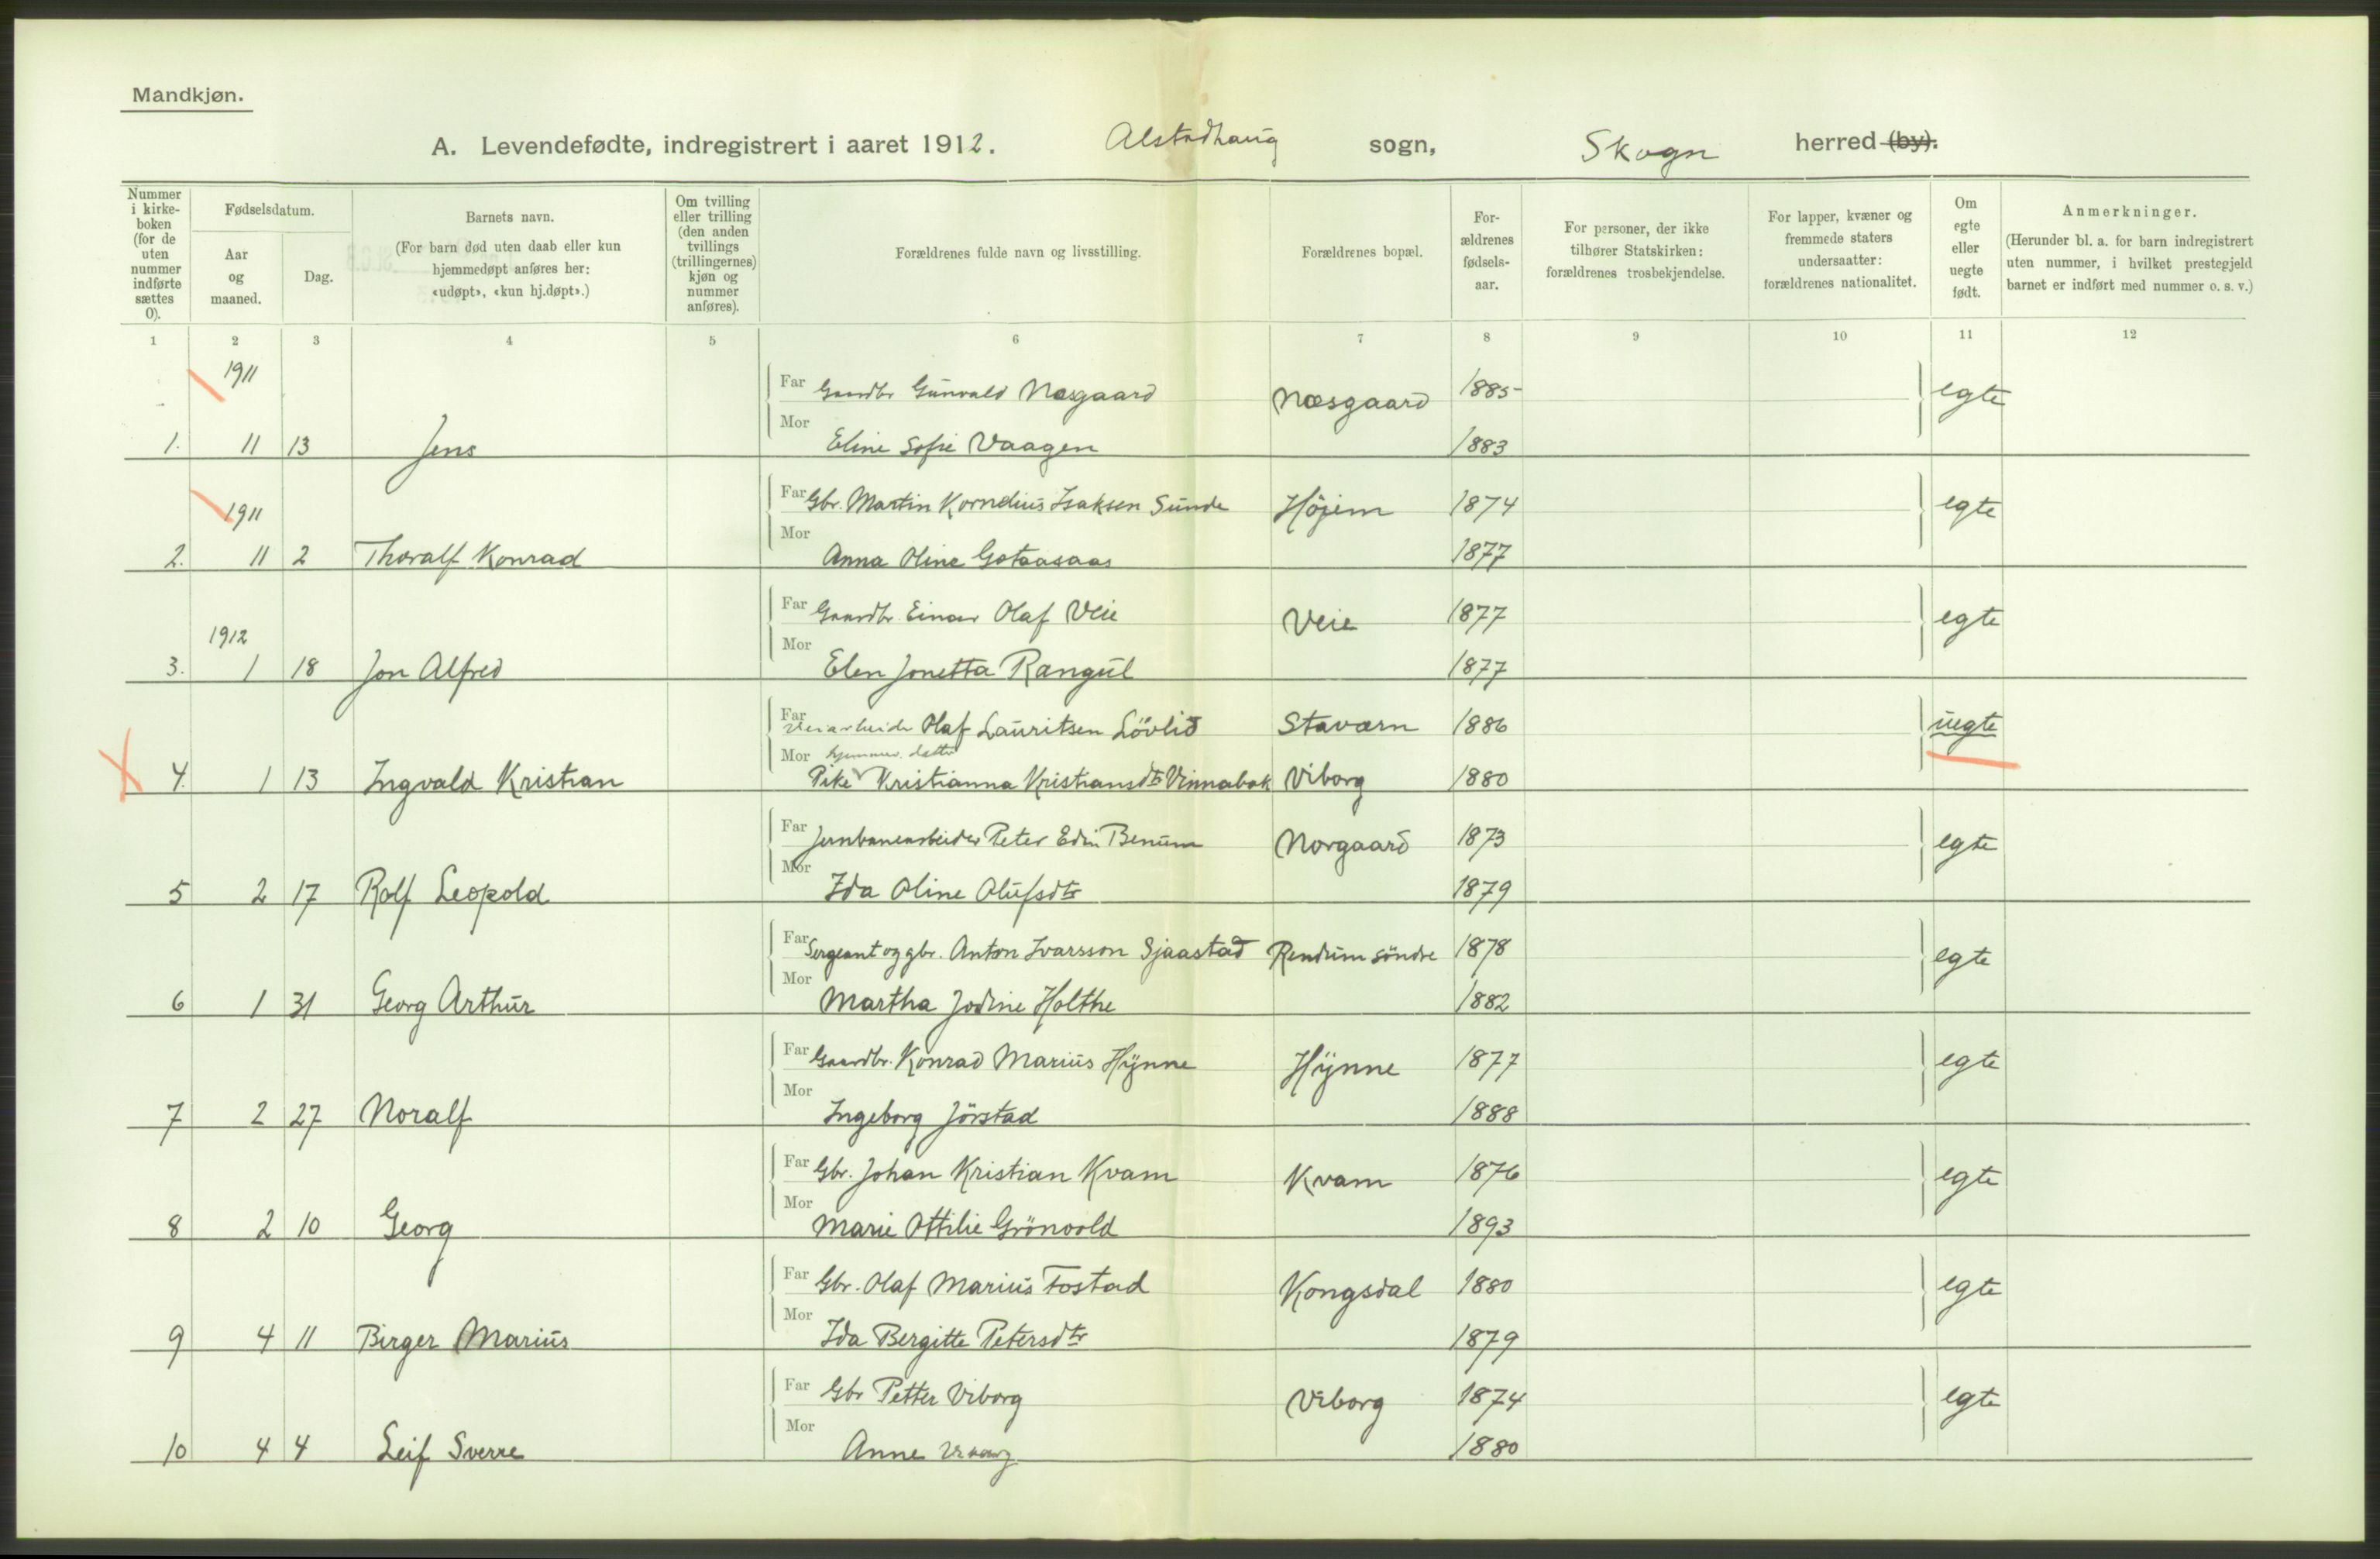 Mandkjøn.
A. Levendefødte, indregistrert i aaret 1912. Alstadhaug sogn, Skogn herred (by).
Nummer i kirkeboken (for de uten nummer indførte sættes 0).
Fødselsdatum.
Aar og maaned.
Dag.
Barnets navn.
(For barn død uten daab eller kun hjemmedøpt anføres her: «udøpt», «kun hj.døpt».)
Om tvilling eller trilling (den anden tvillings (trillingernes) kjøn og nummer anføres).
Forældrenes fulde navn og livsstilling.
Forældrenes bopæl.
Forældrenes fødselsaar.
For personer, der ikke tilhører Statskirken: forældrenes trosbekjendelse.
For lapper, kvæner og fremmede staters undersaatter: forældrenes nationalitet.
Om egte eller uegte født.
Anmerkninger.
(Herunder bl. a. for barn indregistrert uten nummer, i hvilket prestegjeld barnet er indført med nummer o. s. v.)
1 2 3 4 5 6 7 8 9 10 11 12
1911
Far Gaardbr Gunvald Næsgaard Næsgaard 1885 egte
1. 11 13 Jens Mor Eline Sofie Vaagen 1883
1911
Far Gbr. Martin Kornelius Isaksen Sunde Höjem 1874 egte
2. 11 2 Thoralf Konrad Mor Anna Oline Gotaasaas 1877
1912
Far Gaardbr Einar Olaf Veie Veie 1877 egte
3. 1 18 Jon Alfred Mor Elen Jonetta Rangul 1877
Far Veiarbeider Olaf Lauritsen Lövlid Staværn 1886 uegte
hjemmev. datter
4. 1 13 Ingvald Kristian Mor Pike Kristianna Kristiansdtr Vinnabak Viborg 1880
Far Jernbanearbeider Peter Edin Benum Norgaard 1873 egte
5 2 17 Rolf Leopold Mor Ida Oline Olufsdtr 1879
Far Sergeant og gbr. Anton Ivarsson Sjaastad Rendum söndre 1878 egte
6 1 31 Georg Arthur Mor Martha Jodine Holthe 1882
Far Gaardbr. Konrad Marius Hynne Hynne 1877 egte
7 2 27 Noralf Mor Ingeborg Jörstad 1888
Far Gbr. Johan Kristian Kvam Kvam 1876 egte
8 2 10 Georg Mor Marie Ottilie Grönvold 1893
Far Gbr. Olaf Marius Fostad Kongsdal 1880 egte
9 4 11 Birger Marius Mor Ida Bergitte Petersdtr 1879
Far Gbr Petter Viborg Viborg 1874 egte
10 4 4 Leif Sverre Mor Anne Viborg 1880